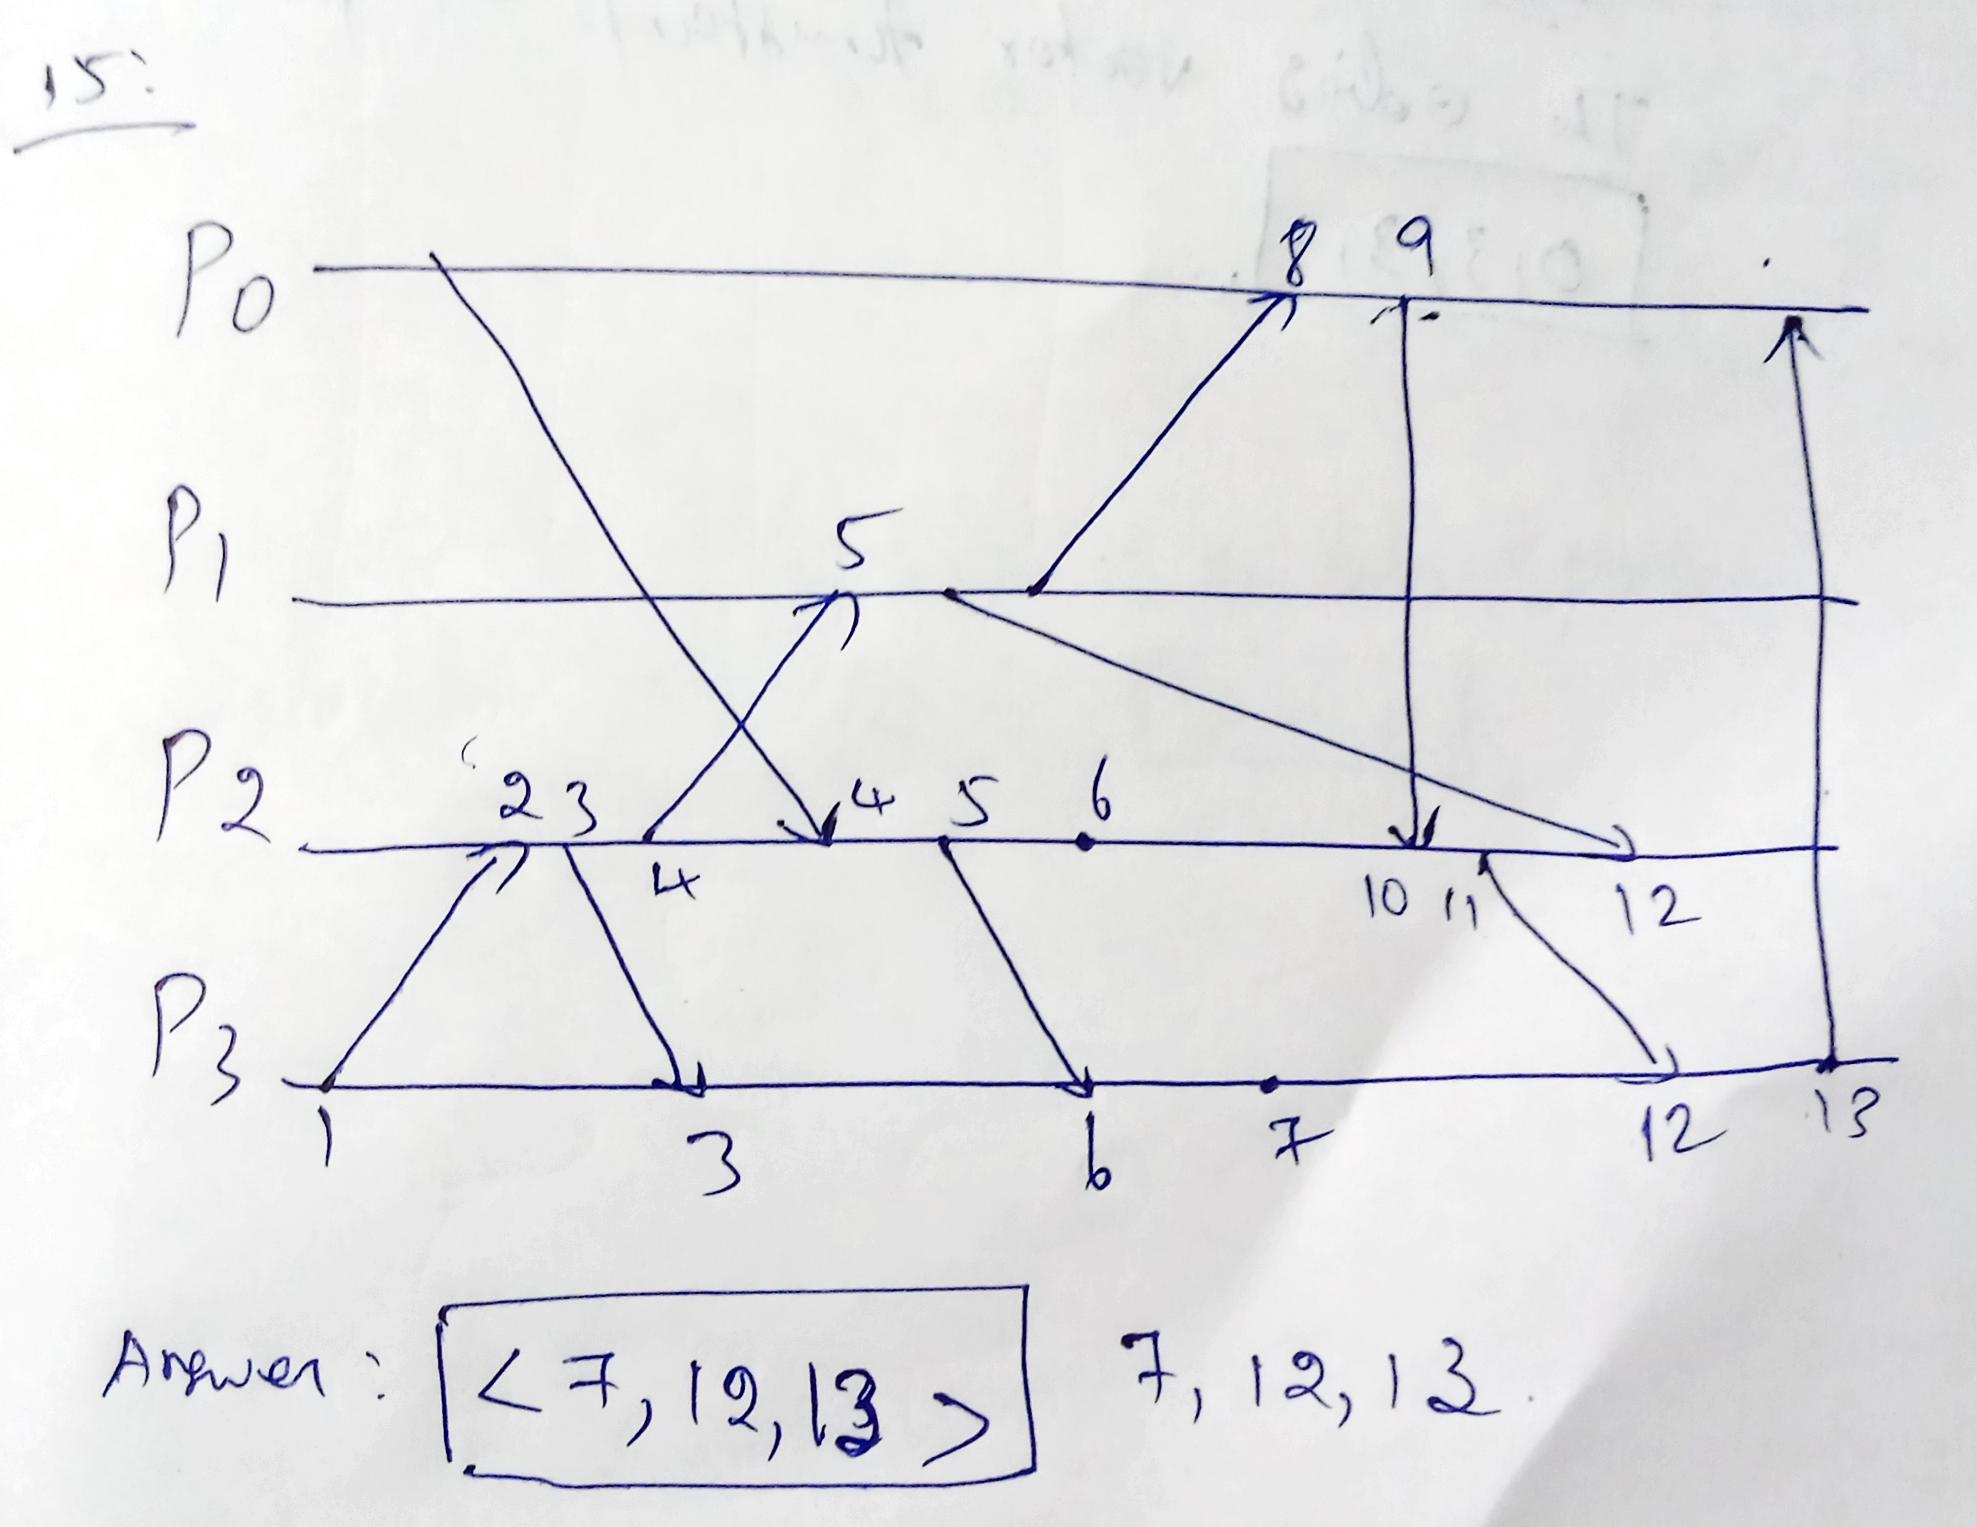 15:
8 9
P0
5
P1
2 3 4 5 6
P2
4 10 11 12
P3
1 3 6 7 12 13
Answer: <7, 12, 13> 7, 12, 13.